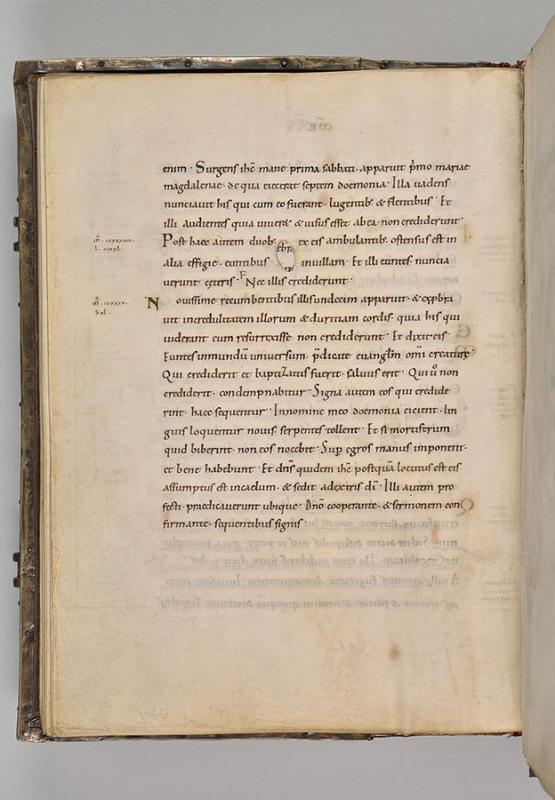 enim · Surgens ihc̅ mane prima sabbati · apparuit p̅mo mariae
magdalenae · de qua eiecerat septem doemonia · Illa uadens
nunciauit his qui cum eo fuerant · lugentib; & flentibus · Et
illi audientes quia uiuer& & uisus esset ab ea · non crediderunt
Post haec autem duob; ex eis ambulantib; ostensus est in
alia effigie · euntibus in uillam · Et illi euntes · nuncia
uerunt ceteris · Nec illis crediderunt ·
Nouissime recumbentibus illis undecim apparuit · & exp̅bra
uit incredulitatem illorum & duritiam cordis · quia his qui
uiderant eum resurrexisse non crediderunt · Et dixit eis ·
Euntes in mundu̅ uniuersum · p̅dicate euanglm̅ omi̅ creaturę
Qui crediderit et baptizatus fuerit · saluus erit · Qui u̅o non
crediderit · condempnabitur · Signa autem eos qui credide
rint · haec sequentur · In nomine meo doemonia eicient · lin
guis loquentur nouis · serpentes tollent · Et si mortiferum
quid biberint · non eos nocebit · Sup̅ egros manus imponent ·
et bene habebunt · Et dn̅s quidem ihc̅ postqua̅ locutus est eis
assumptus est in caelum · & sedit a dextris di̅ · Illi autem pro
fecti · praedicauerunt ubique · Dn̅o cooperante · & sermonem con
firmante · sequentibus signis ·